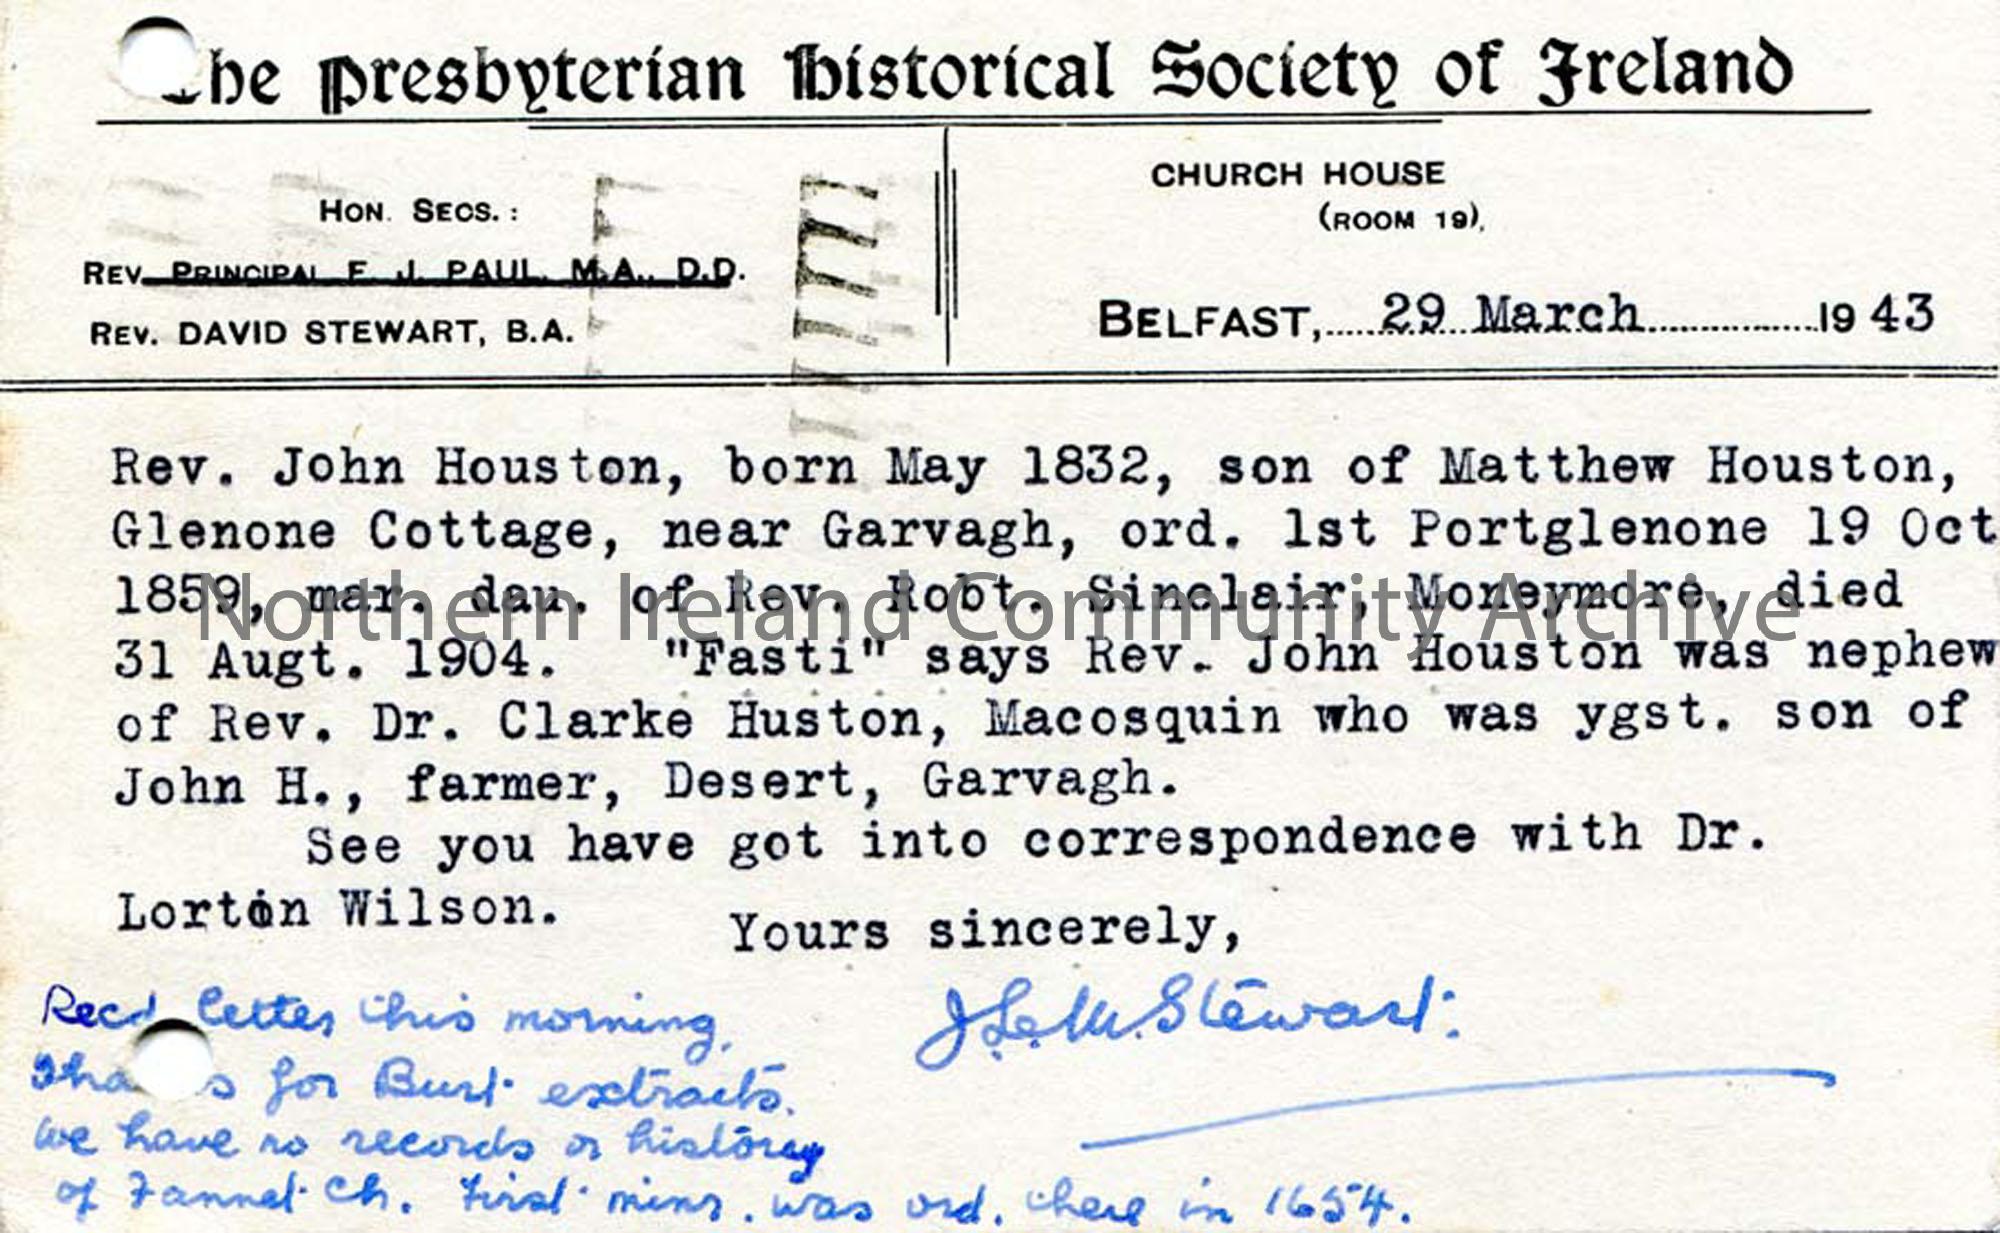 The Presbyterian Historical Society of Ireland
HON. SECS.:
REV. PRINCIPAL F. J. PAUL, M.A., D.D.
REV. DAVID STEWART, B.A.
CHURCH HOUSE
(ROOM 19),
BELFAST, 29 March 1943
Rev. John Houston, born May 1832, son of Matthew Houston,
Glenone Cottage, near Garvagh, ord. 1st Portglenone 19 Oct
1859, mar. dau. of Rev. Robt. Sinclair, Moneymore, died
31 Augt. 1904. "Fasti" says Rev. John Houston was nephew
of Rev. Dr. Clarke Huston, Macosquin who was ygst. son of
John H., farmer, Desert, Garvagh.
See you have got into correspondence with Dr.
Lorton Wilson.
Yours sincerely,
J.L.M. Stewart.
Recd letter this morning.
Thanks for Burt extracts.
We have no records or history
of Fannet Ch. First minr. was ord. there in 1654.
Northern Ireland Community Archive